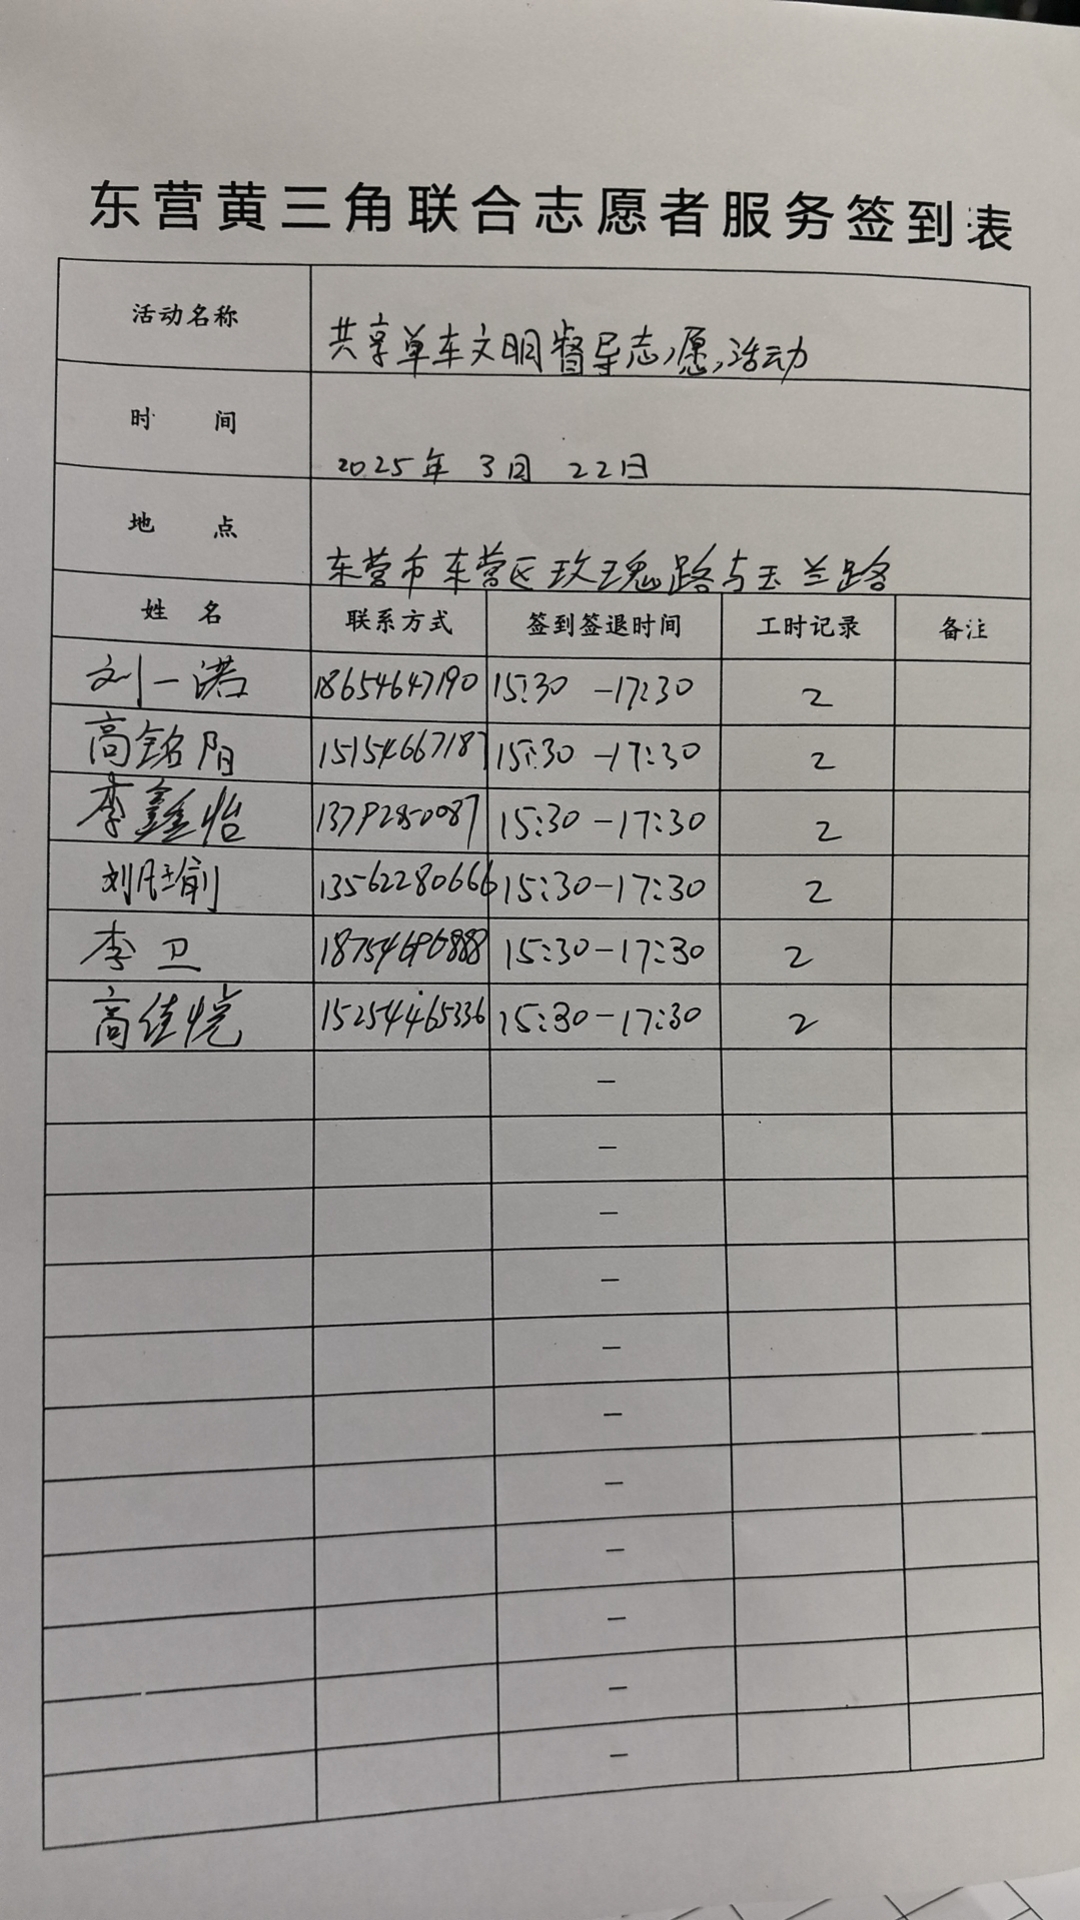 东营黄三角联合志愿者服务签到表
活动名称 共享单车文明督导志愿活动
时 间 2025年 3月 22日
地 点 东营市东营区玫瑰路与玉兰路
姓 名 联系方式 签到签退时间 工时记录 备注
刘一诺 18654647190 15:30 -17:30 2
高铭阳 15154667187 15:30 -17:30 2
李鑫怡 13792850087 15:30-17:30 2
刘 13562280666 15:30-17:30 2
李卫 15:30-17:30 2
高佳悦 15254465336 15:30-17:30 2
-
-
-
-
-
-
-
-
-
-
-